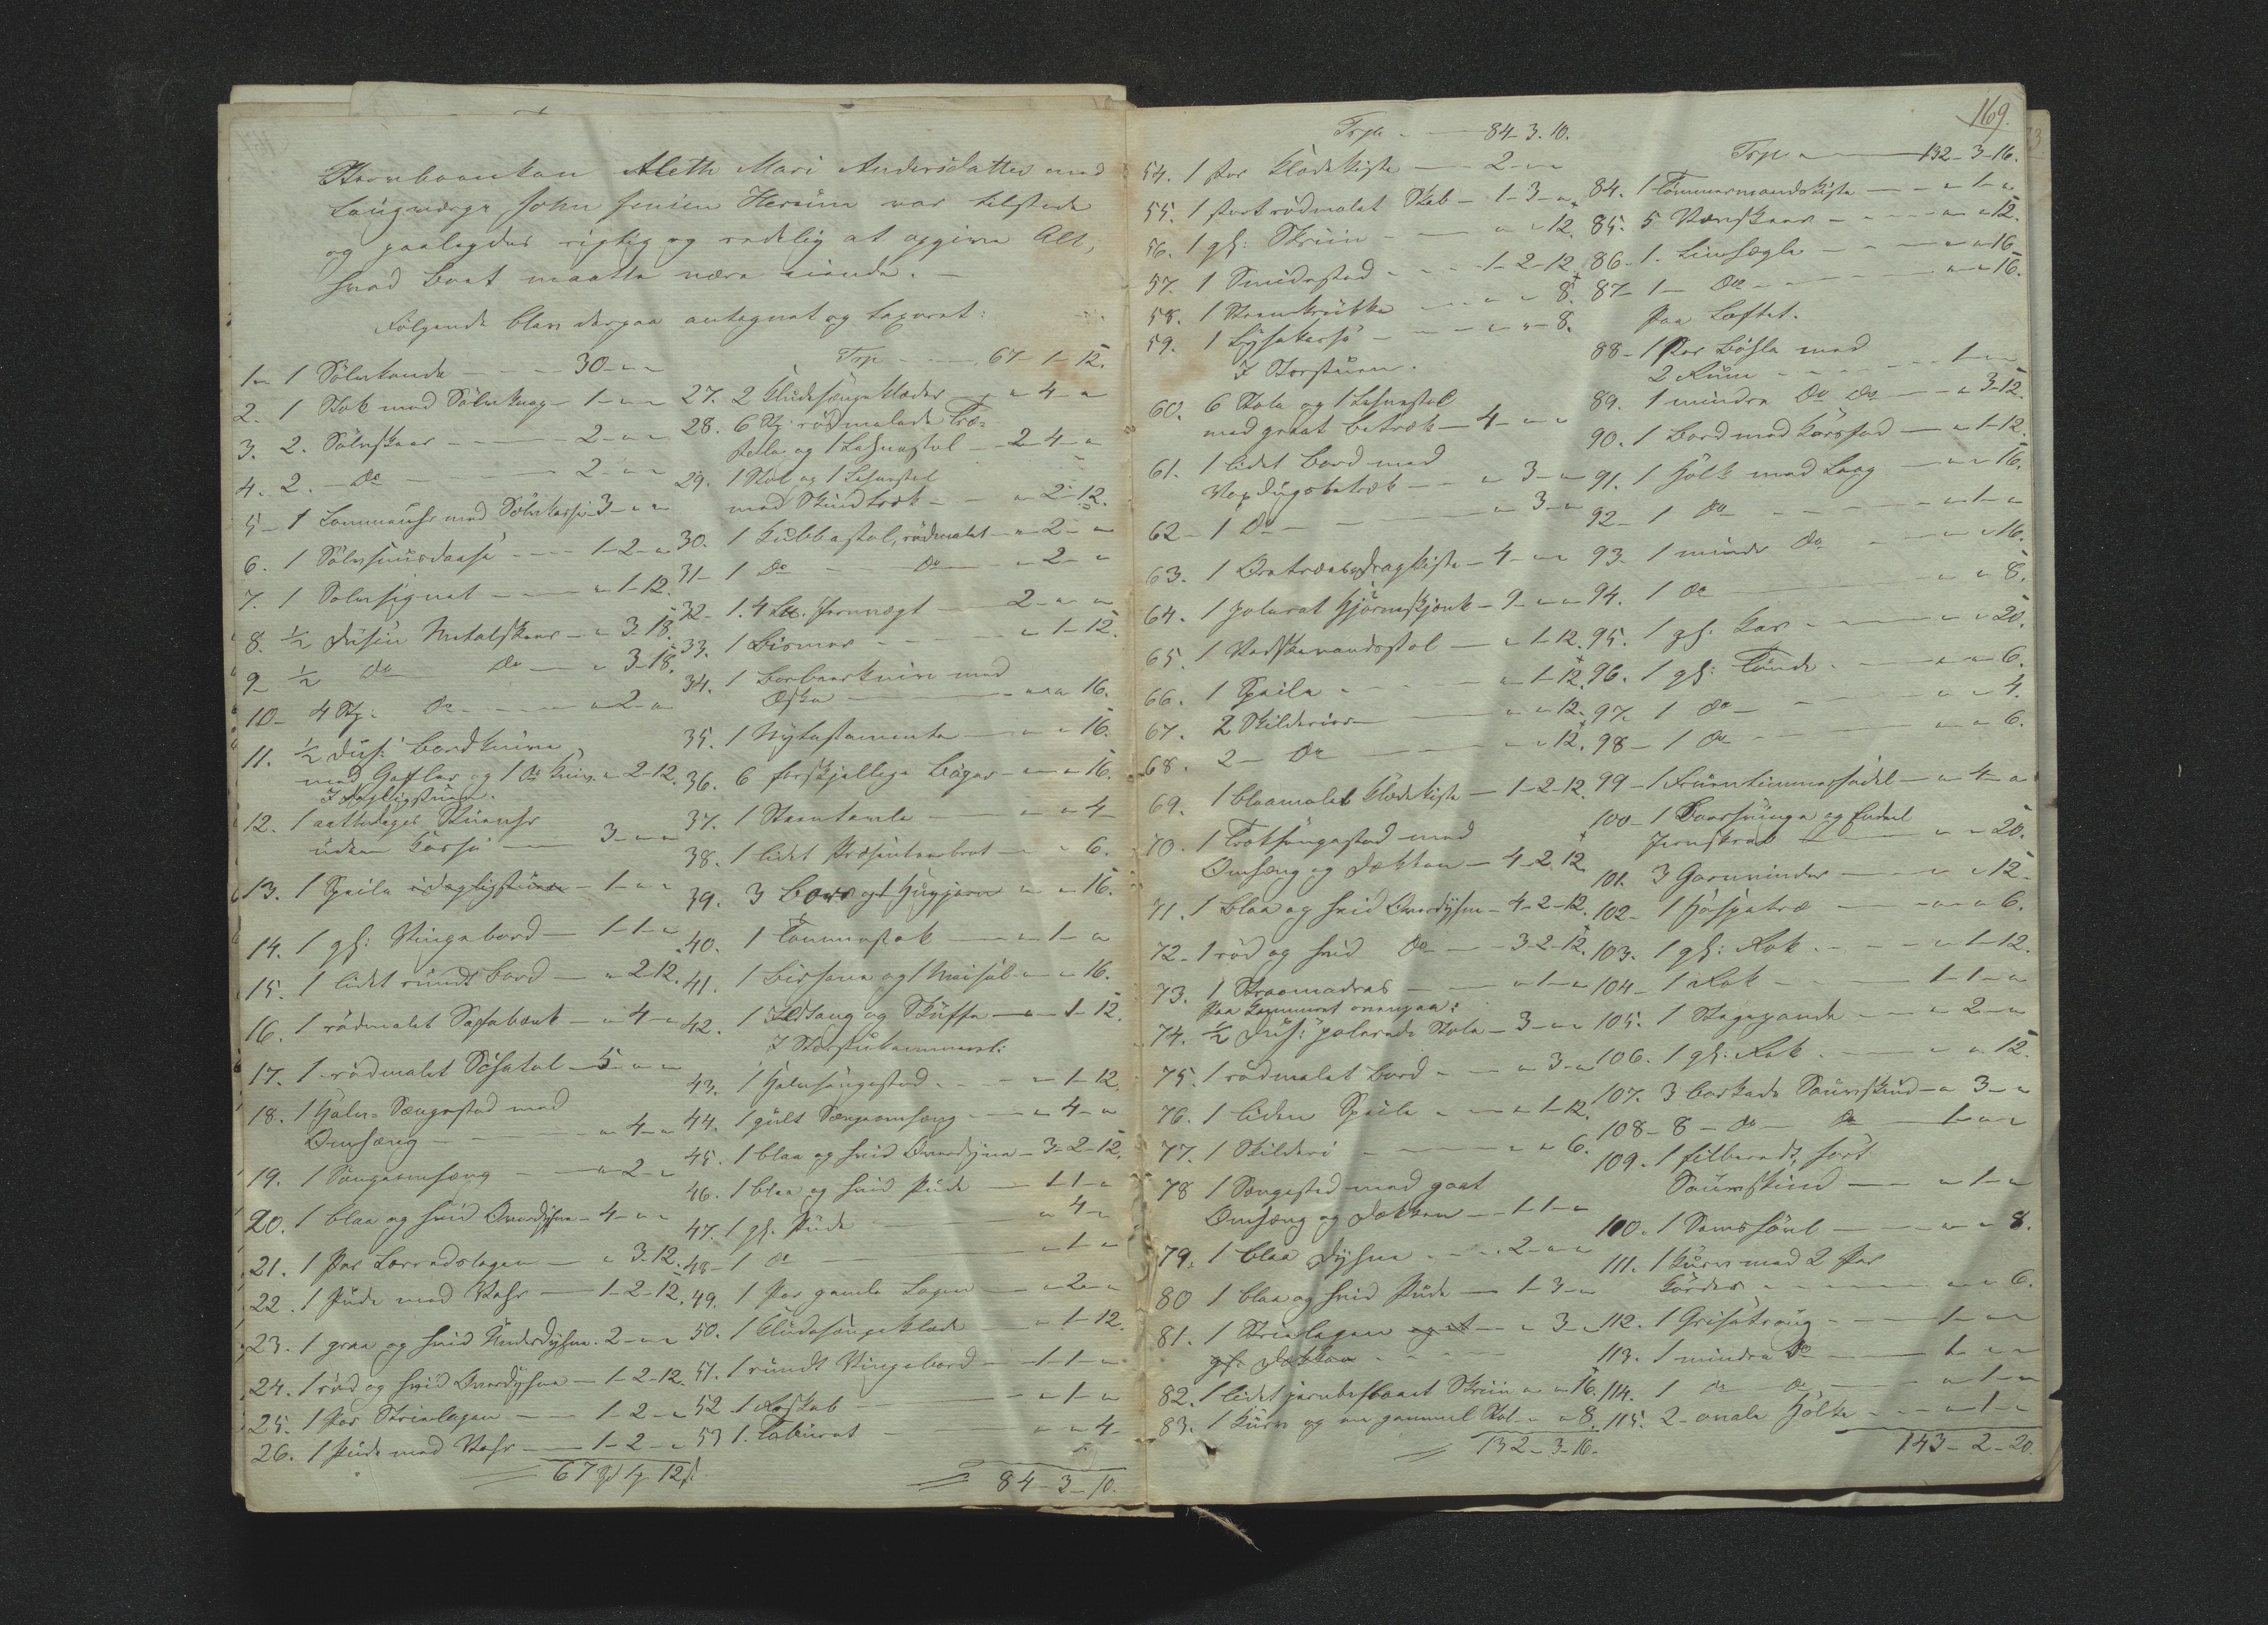 Stervboenken Alethe Mari Andersdatter med
Laugværge John Jensen Herrim var tilstede
og paalagdes rigtig og redelig at opgive Alt,
hvad Boet maatte være eiende. —
Følgende blev derpaa antegnet og taxeret:
1 - 1 Sölvkande - - - 30 - " - "
2. 1 Stok med Sölvknap - 1 - " - "
3. 2. Sölvskeer - - - 2 - " - "
4. 2. - Do - - 2 - " - "
5 - 1 Lommeuhr med Sölvkasse - 3 - " - "
6. 1 Sölvsnuusdaase - - 1 - 2 - "
7. 1 Sölvsignet - - - " - 1 - 12.
8. 1/2 Dusin Metalskeer - " 3 - 18.
9 - 1/2 Do Do - " 3 - 18.
10 - 4 Stk. Do - - - " - 2 - "
11. 1/2 Dus: Bordknive
med Gafler og 1 Do Kniv - " 2 - 12.
I Dagligstuen.
12. 1 aattedages Stueuhr
uden Kasse - 3 - " - "
13. 1 Speile i dagligstuen - 1 - " - "
14. 1 gl: Vingebord - 1 - 1 - "
15. 1 lidet rundt Bord - " 2 - 12.
16. 1 rödmalet Sofabænk - " - 4 - "
17. 1 rödmalet - 5 - " - "
18. 1 Halv-Sængested med
Omhæng - - " - 4 - "
19. 1 Sængeomhæng - " - 2 - "
20. 1 blaa og hvid Overdyne - 4 - " - "
21. 1 Par Lærredslagen - " 3 - 12.
22. 1 Pude med Vahr - 1 - 2 - 12.
23. 1 graa og hvid Underdyne. 2 - " - "
24. 1 rød og hvid Overdyne - 1 - 2 - 12.
25. 1 Par Strielagen - 1 - 2 - "
26. 1 Pude med Vahr - 1 - 2 - "
67 Spd 1 12 s.
Trp - - 67 - 1 - 12.
27. 2 Kludesængeklæder - " 4 - "
28. 6 Stk rödmalede Træ-
stole og 1 Lehnestol - 2 - 4 - "
29. 1 Stol og 1 Lehnestol
med Skindtræk - - " - 2 - 12.
30. 1 Kubbestol, rödmalet - " - 2 - "
31 - 1 Do - Do - " - 2 - "
32 - 1. 4 Lb. Jernvægt - 2 - " - "
33. 1 Bismer - " - 1 - 12.
34. 1 Barbeerkniv med
Æske - " - " 16.
35. 1 Nytestamente - " - " 16.
36. 6 forskjellige Bøger - " - " 16.
37. 1 Steentavle - " - " 4 -
38. 1 lidet Præsenteerbret - " - " 6.
39. 3 Bore og 1 Hugjern " - " 16.
40. 1 Tommestok - " - 1 - "
41. 1 og 1 - " - 16.
42. 1 Ildtang og Skuffe - " - 1 - 12.
I Storstukammeret:
43. 1 Halvsængested - - " - 1 - 12.
44. 1 guult Sængeomhæng - " - 4 - "
45. 1 blaa og hvid Overdyne - 3 - 2 - 12.
46. 1 blaa og hvid Pude - 1 - 1 - "
47. 1 gl. Pude - " - 4 - "
48 - 1 Do - " - 1 - "
49. 1 Par gamle Lagen - " - 2 - "
50. 1 Kludesængeklæde - " - 1 - 12.
51. 1 rundt Vingebord - 1 - 1 - "
52 - 1 Roskab - " - 1 - "
53 1. Taburet - " - " 4 -
84 - 3 - 10.
169.
Trp - 84 - 3 - 10.
54. 1 stor Klædekiste - 2 - " - "
55. 1 stort rödmalet Skab - 1 - 3 - "
56. 1 gl: Skriin - " - " 12.
57. 1 - 1 - 2 - 12
58. 1 Steenkrukke - " - " 8.
59. 1 Lysekasse - " - " - 8.
I Storstuen.
60. 6 Stole og 1 Lehnestol
med graat Betræk - 4 - " - "
61. 1 lidet Bord med
Voxdugsbetræk - " 3 - "
62 - 1 Do - - " 3 - "
63. 1 Dragkiste - 4 - " - "
64. 1 poleret Hjørneskjænk - 9 - " - "
65. 1 Vadskevandsstol - " - 1 - 12.
66. 1 Speile - - " - 1 - 12.
67. 2 Skilderier - " - " 12.
68. 2 - Do - " - " 12.
69. 1 blaamalet Klædekiste - 1 - 2 - 12.
70. 1 Træksængested med
Omhæng og Dækken - 4 - 2 - 12.
71. 1 blaa og hvid Overdyne - 4 - 2 - 12.
72 - 1 rød og hvid Do - 3 - 2 - 12.
73. 1 Straamadras - " - 1 - "
Paa Kammeret ovenpaa:
74. 1/2 Dus: polerede Stole - 3 - " - "
75. 1 rödmalet Bord - - " - 3 - "
76. 1 liden Speile - - " - 1 - 12.
77. 1 Skilderi - " - " 6.
78 1 Sængested med graat
Omhæng og Dækken - 1 - 1 - "
79. 1 blaa Dyne - - 2 - " - "
80 1 blaa og hvid Pude - 1 - 3 - "
81. 1 Strielagen og et - " 3 - "
gl. Dækken
82. 1 lidet jernbeslaaet Skriin " - " 16.
83. 1 Kurv og en gammel Stol - " 8.
132 - 3 - 16.
Trp - 132 - 3 - 16.
84. 1 Tømmermandskiste - " - 1 - "
85. 5 - " - " 12.
86 - 1. Linhægle - " - " 16.
87 - 1 - Do - " - " 16.
Paa Loftet.
88 - 1 stor Bøhle med
2 Rum - - 1 - " - "
89. 1 mindre Do Do - " 3 - 12.
90. 1 Bord med - " - 1 - 12.
91. 1 Holk med Laag - " - " 16.
92 - 1 Do - " - 1 - "
93. 1 mindre Do - " - " 16.
94. 1 Do - " - " 8.
95. 1 gl. Kar - " - " 20.
96. 1 gl: Tønde - " - " 6.
97. 1 Do - " - " 4.
98 - 1 Do - " - " 6.
99 - 1 Fruentimmersadel - " - 4 - "
100 - 1 og Endeel
Jernskrab - " - " 20.
101. 3 Garnvinder - " - " 12 -
102 - 1 Haspetræ - " - " 6.
103. 1 gl: Rok - " - 1 - 12.
104 - 1 Rok - 1 - 1 - "
105. 1 Stegepande - " - 2 - "
106. 1 gl: Rok - " - " 12.
107. 3 barkede Saueskind - " 3 - "
108 - 8 - Do - Do - 1 - " - "
109. 1 hilberedt, sort
Saueskind - " - 1 - "
110. 1 - " - " 8.
111. 1 Kurv med 2 Par
Karder - " - " 6.
112. 1 Grisetraug - - 1 - " - "
113. 1 mindre Do - 1 - " - "
114. 1 Do Do - " - 1 - "
115. 2 - ovale Holke - " - 1 - "
143 - 2 - 20.